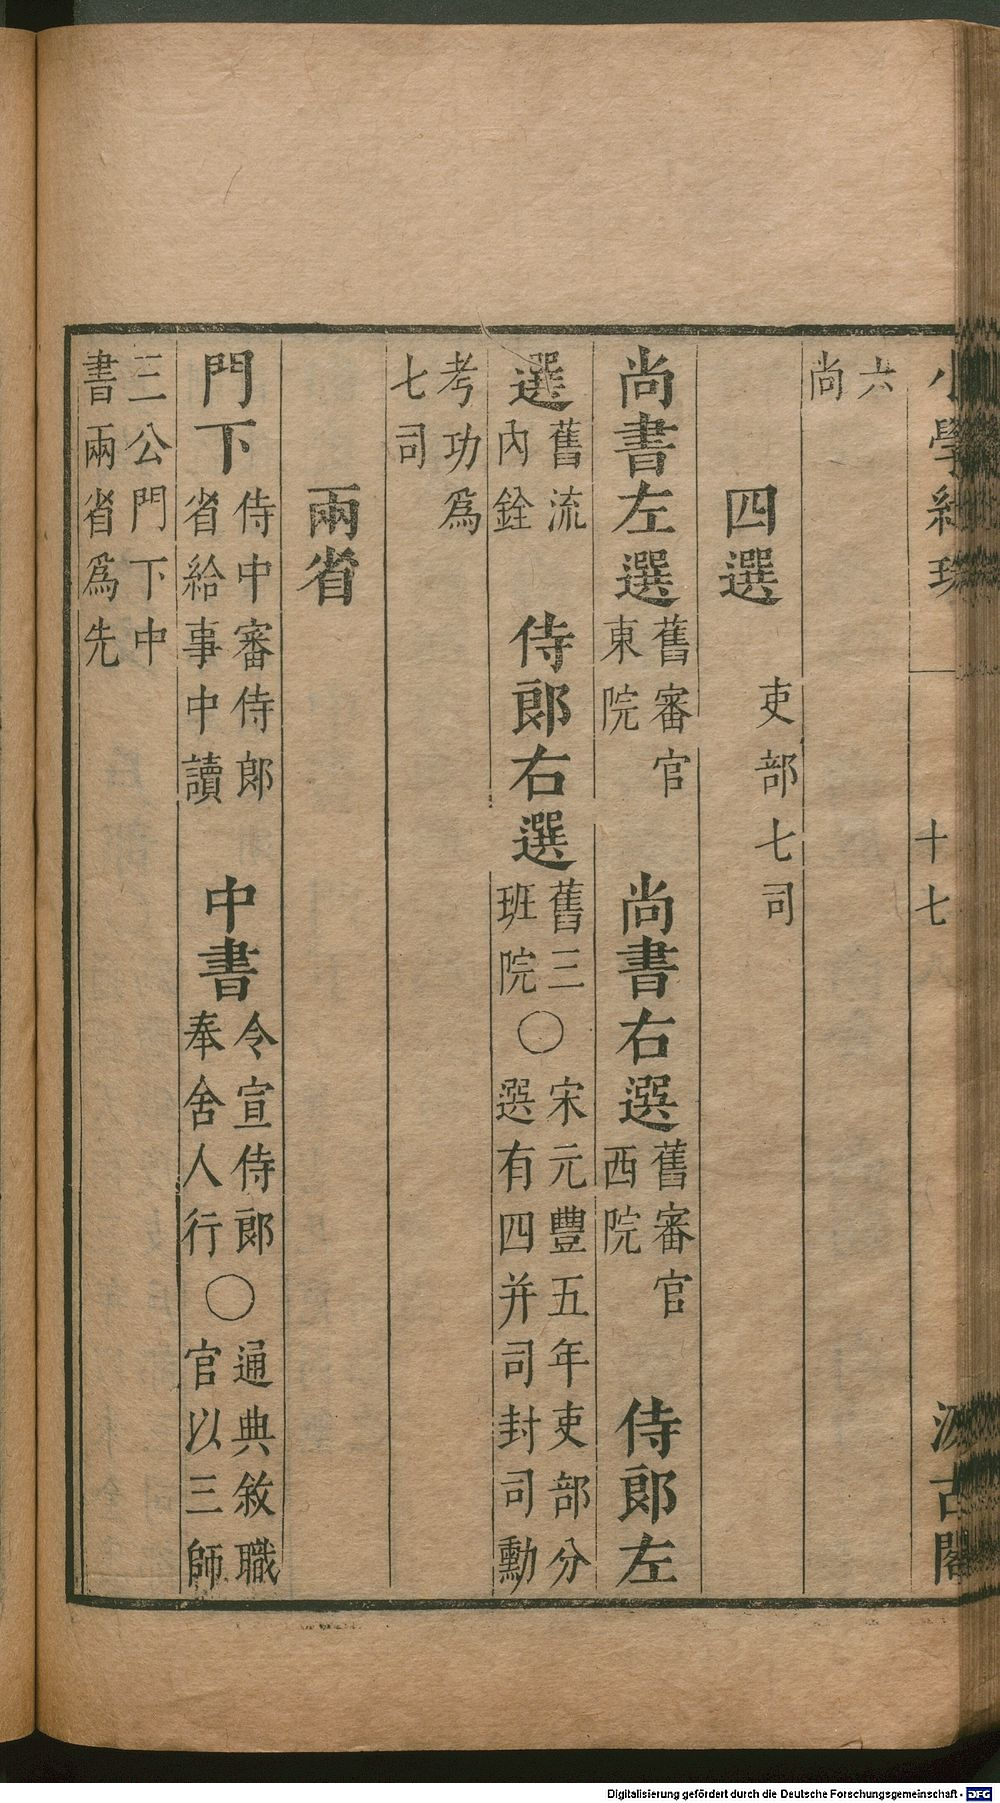 小學紺珠 十七 汲古閣
六
尚
四選 吏部七司
尚書左選 舊審官
東院 尚書右選 舊審官
西院 侍郎左
選 舊流
內銓 侍郎右選 舊三
班院 〇 宋元豐五年吏部分
選有四并司封司勳
考功爲
七司
兩省
門下 侍中審侍郎
省給事中讀 中書 令宣侍郎
奉舍人行 〇 通典敘職
官以三師
三公門下中
書兩省爲先
Digitalisierung gefördert durch die Deutsche Forschungsgemeinschaft - DFG